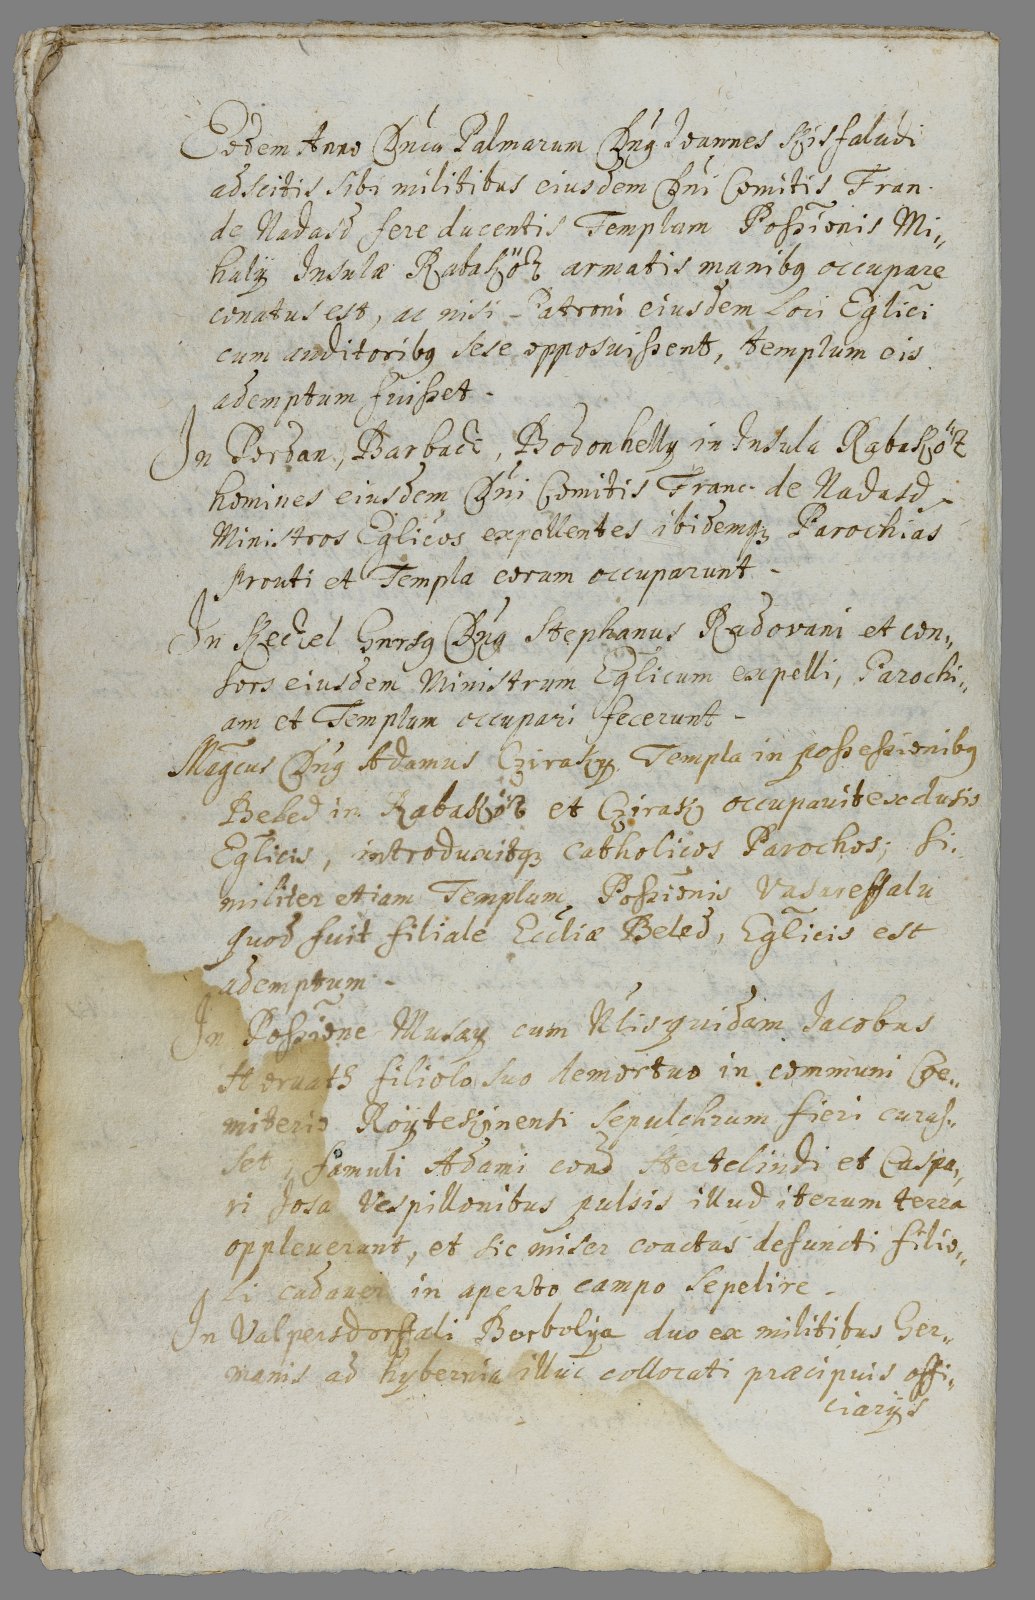 Eodem Anno Dnica Palmarum Dnus Joannes Kisfaludi
adscitis sibi militibus eiusdem Dni Comitis Fran.
de Nadasd fere ducentis Templum Possionis Mi„
haly Insulæ Rabaköz armatis manibq occupare
conatus est, ac nisi Patroni eiusdem Loci Eglici
cum auditoribq sese opposuissent, templum eis
ademptum fuisset.
In Pordan, Barbacz, Bodonhelly in Insula Rabaköz
homines eiusdem Dni Comitis Franc. de Nadasd
Ministros Eglicos expellentes ibidemq Parochias
et Templa eorum occuparunt.
In Keczel Dnus Stephanus Radovani et con„
sors eiusdem Ministrum Eglicum expelli, Parochi„
am et Templum occupari fecerunt.
Magcus Dnus Adamus Cziraky Templa in possessionibq
Beled in Rabaköz et Czirak occupavit exclusis
Eglicis, introduxitq Catholicos Parochos; Si„
militer etiam Templum Possionis Vasareffalu
quod fuit filiale Eccliæ Beled, Eglicis est
ademptum.
In Possione Musay cum Nlis quidam Jacobus
Horvath filiolo suo demortuo in communi Coe„
miterio sepulchrum fieri curas„
set, famuli Adami Hertelindi et Caspa„
ri Josa Vespillonibus pulsis illud iterum terra
oppleverunt, et sic miser coactus defuncti filio„
li cadaver in aperto campo sepelire.
In Valpersdorffali Borbolya duo ex militibus Ger„
manis ad hyberna illuc collocati præcipuis offi„
ciarijs